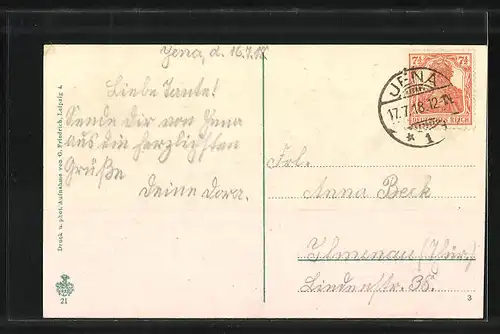 Jena, d. 16.7.18
Liebe Tante!
Sende dir von Jena
aus die herzlichsten
Grüße
deine Dora.
Druck u. phot. Aufnahme von G. Friedrich, Leipzig 4.
21
7½ 7½
DEUTSCHES REICH
JENA
17.7.18.12-1N
* 1
Frl.
Anna Beck
Ilmenau (Thür)
Lindenstr. 35.
3